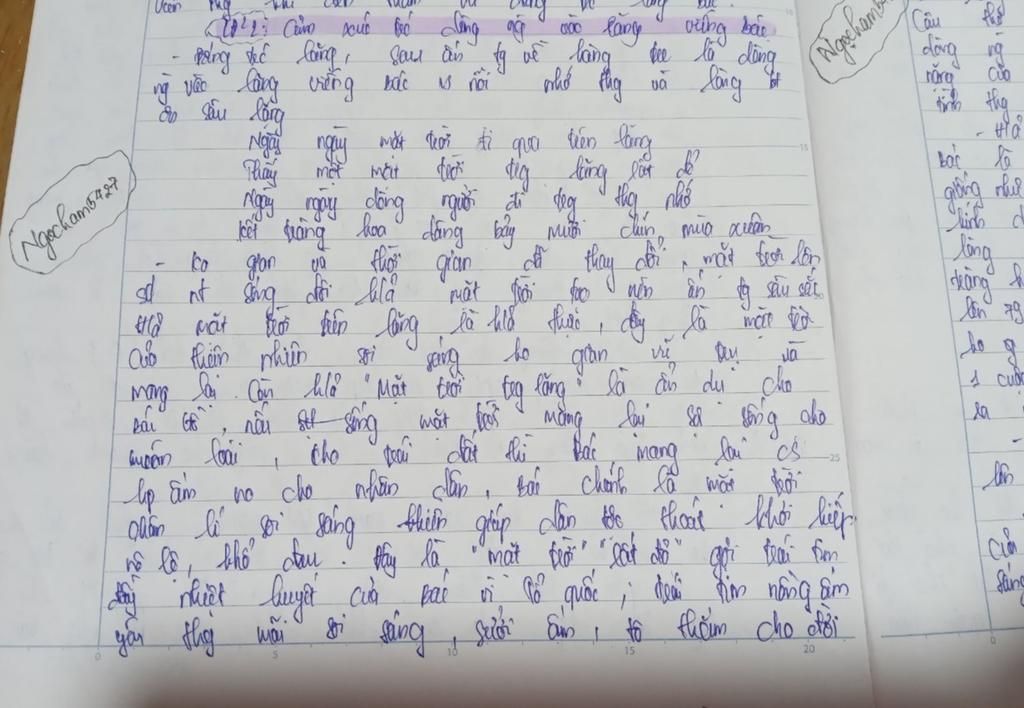 LĐ2: Cảm xúc trc dòng ng vào lăng viếng bác
- Đứng trc lăng, sau ấn tg về hàng tre là dòng
ng vào lăng viếng bác vs nỗi nhớ thg và lòng bt
ơn sâu lắng
Ngày ngày mặt trời đi qua trên lăng
Thấy một mặt trời trg lăng rất đỏ
Ngày ngày dòng người đi trg thg nhớ
Kết tràng hoa dâng bảy mươi chín mùa xuân
- Ko gian và thời gian đã thay đổi,
sd nt sóng đôi h/ả mặt trời tạo nên ấn tg sâu sắc
H/ả mặt trời trên lăng là h/ả thực, đây là mặt trời
của thiên nhiên soi sáng ko gian vũ trụ và
mang lại. Còn h/ả "Mặt trời trg lăng" là ẩn dụ cho
bác Hồ, nếu sống mặt trời mang lại sự sống cho
muôn loài, cho trái đất thì Bác mang lại cs
hp ấm no cho nhân dân, Bác chính là mặt trời
chân lí soi sáng giúp dân tộc thoát khỏi kiếp
nô lệ, khổ đau. Đây là "mặt trời" "rất đỏ" gợi trái tim
đầy nhiệt huyết của Bác vì Tổ quốc, trái tim nồng ấm
yêu thg mãi soi sáng, sưởi ấm, tô thắm cho đời
Ngocham5427
Ngocham54
Câu thơ
dòng ng
năng của
tình thg
- H/ả
Bác là
giống như
kính d
lòng
tràng h
lên 79
ko g
1 cuộc
ra
lên
Của
sáng